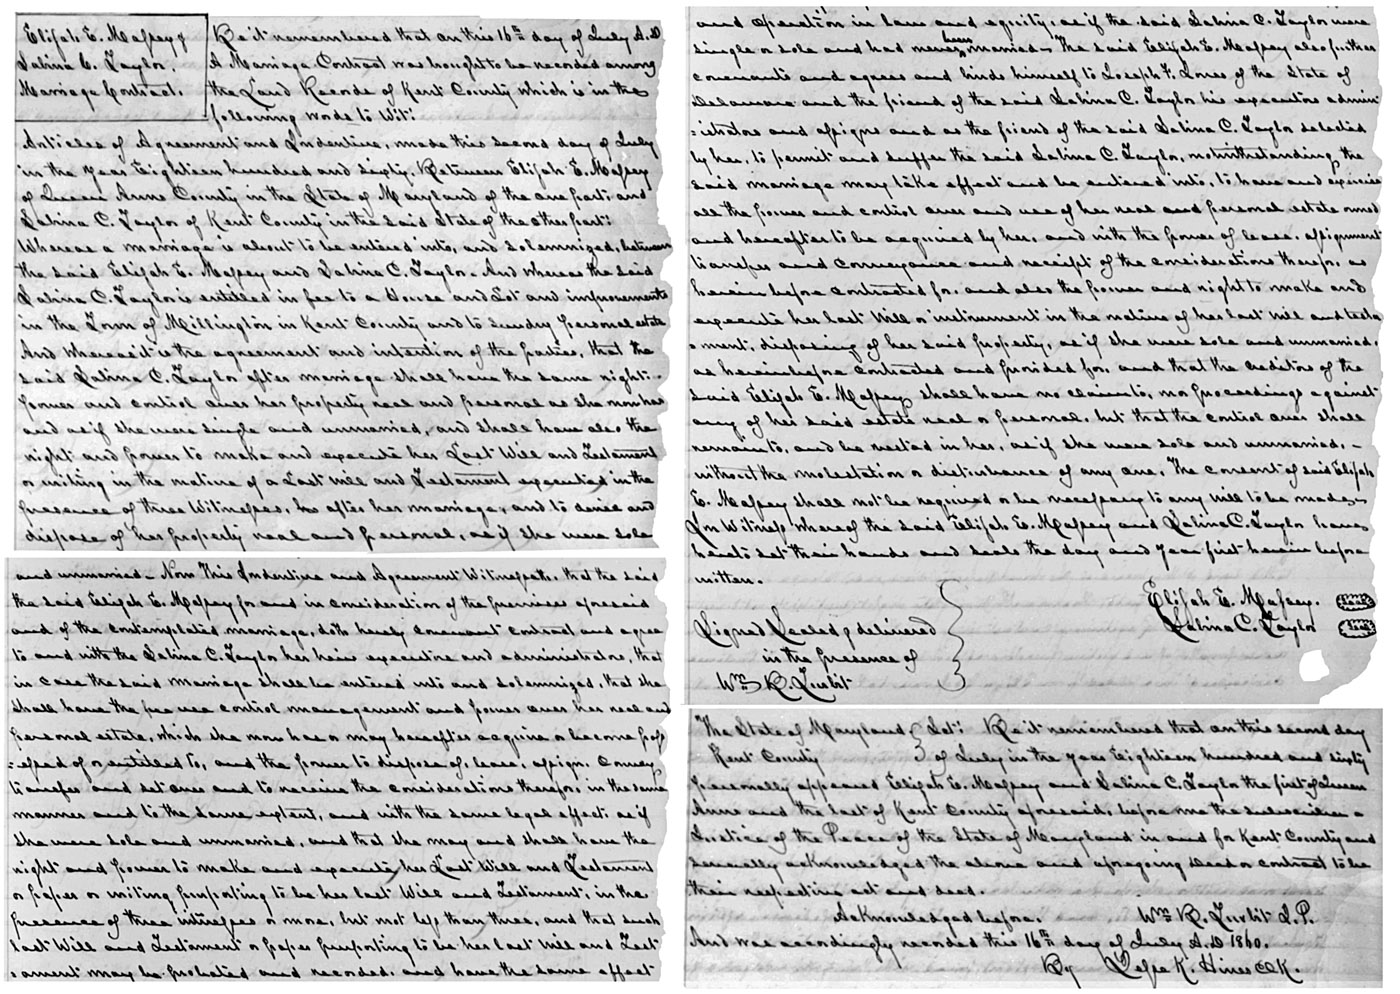 Elijah E. Massey &
Sabina C. Taylor.
Marriage Contract.
Be it remembered that on this 16th day of July A.D
A Marriage Contract was brought to be recorded among
the Land Records of Kent County which is in the
following words to Wit:
Articles of Agreement and Indenture, made this second day of July
in the year Eighteen hundred and sixty, Between Elijah E. Massey
of Queen Anne County in the State of Maryland of the one part: and
Sabina C. Taylor of Kent County in the said State of the other part:
Whereas a marriage is about to be entered into, and solemnized, between
the said Elijah E. Massey and Sabina C. Taylor - And whereas the said
Sabina C. Taylor is entitled in fee to a House and Lot and improvements
in the Town of Millington in Kent County and to sundry personal estate
And whereas it is the agreement and intention of the parties, that the
said Sabina C. Taylor after marriage shall have the same right -
power and control over her property real and personal as she now has
and as if she were single and unmarried, and shall have also the
right and power to make and execute her Last Will and Testament
or writing in the nature of a Last will and Testament executed in the
presence of three Witnesses, after her marriage, and to devise and
dispose of her property real and personal, as if she were sole
and unmarried - Now This Indenture and Agreement Witnesseth, that the said
the said Elijah E. Massey for and in consideration of the premises aforesaid
and of the contemplated marriage, doth hereby covenant contract and agree
to and with the Sabina C. Taylor her heirs executors and administrators, that
in case the said marriage shall be entered into and solemnized, that she
shall have the use control management and power over her real and
personal estate, which she now has or may hereafter acquire or become poss
=essed of or entitled to, and the power to dispose of, lease, assign, convey
transfer and set over and to receive the considerations therefor, in the same
manner and to the same extent, and with the same legal effect as if
she were sole and unmarried, and that she may and shall have the
right and power to make and execute her Last Will and Testament
or paper or writing purporting to be her last Will and Testament, in the
presence of three witnesses or more, but not less than three, and that such
last Will and Testament or paper purporting to be her last will and Test
=ament may be probated and recorded, and have the same effect
and operation in law and equity, as if the said Sabina C. Taylor were
single or sole and had never been married - The said Elijah E. Massey also further
covenants and agrees and binds himself to Joseph F. Jones of the State of
Delaware and the friend of the said Sabina C. Taylor his executors admin
=istrators and assigns and as the friend of the said Sabina C. Taylor selected
by her, to permit and suffer the said Sabina C. Taylor, notwithstanding the
said marriage may take effect and be entered into, to have and exercise
all the power and control over and use of her real and personal estate owned
and hereafter to be acquired by her, and with the power of lease, assignment
transfer and conveyance and receipt of the considerations therefor, as
herein before contracted for, and also the power and right to make and
execute her last Will or instrument in the nature of her last will and testa
=ment, disposing of her said property, as if she were sole and unmarried,
as herein before contracted and provided for, and that the creditors of the
said Elijah E. Massey shall have no claim to, nor proceedings against
any of her said estate real or personal, but that the control over shall
remain to, and be vested in her, as if she were sole and unmarried, -
without the molestation or disturbance of any one. The consent of said Elijah
E. Massey shall not be required or be necessary to any will to be made,
In Witness whereof the said Elijah E. Massey and Sabina C. Taylor have
hereto set their hands and seals the day and year first herein before
written.
Elijah E. Massey. Seal
Signed Sealed & delivered Sabina C. Taylor Seal
in the presence of
Wm R. Turbit
The State of Maryland, Sct: Be it remembered that on this second day
Kent County of July in the year Eighteen hundred and sixty
Personally appeared Elijah E. Massey and Sabina C. Taylor the first of Queen
Anne and the last of Kent County aforesaid, before me the subscriber a
Justice of the Peace of the State of Maryland in and for Kent County and
severally acknowledged the above and aforegoing Deed or contract to be
their respective act and deed.
Acknowledged before. Wm R. Turbit J.P.
And was accordingly recorded this 16th day of July A.D 1860.
By Jesse K. Hines Clk.